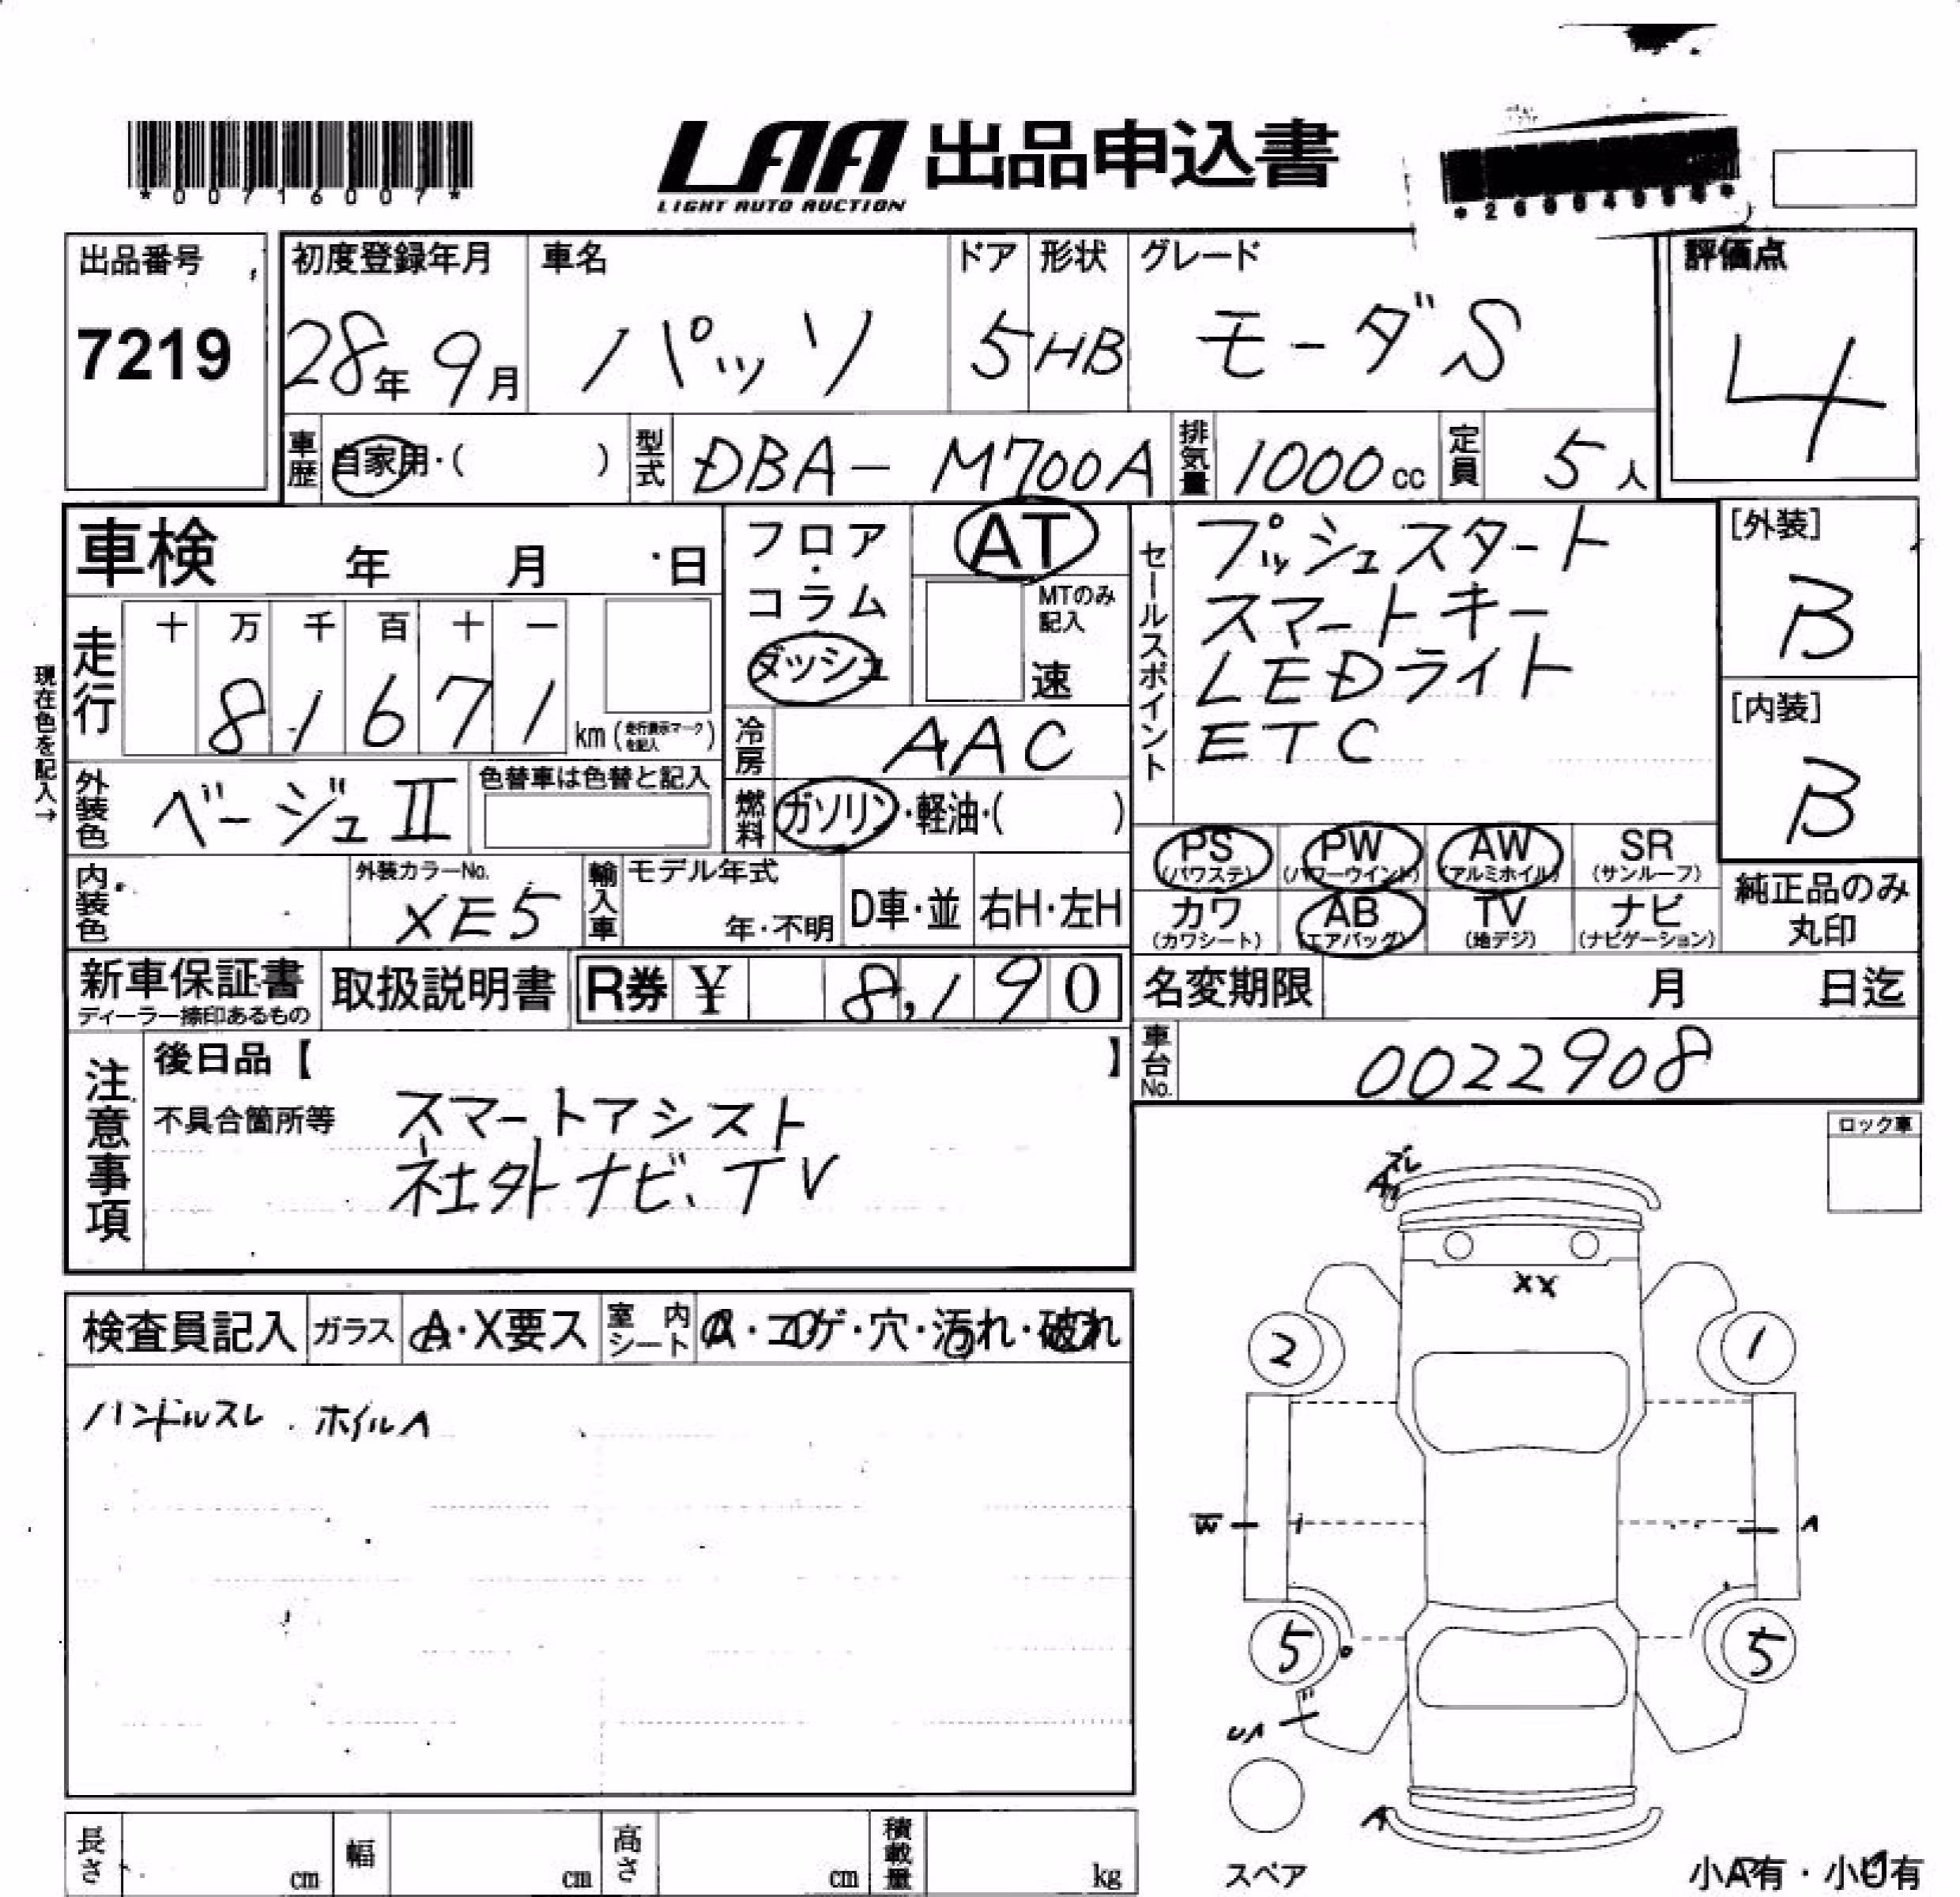 *00716007*
LAA 出品申込書
LIGHT AUTO AUCTION
出品番号 7219
初度登録年月 28年 9月
車名 パッソ
ドア 5
形状 HB
グレード モーダS
評価点 4
車歴 自家用・( )
型式 DBA- M700A
排気量 1000cc
定員 5人
車検 年 月 日
フロア・コラム ダッシュ
AT
MTのみ記入 速
セールスポイント
プッシュスタート
スマートキー
LEDライト
ETC
[外装] B
[内装] B
現在色を記入→
走行 十 万 千 百 十 一
81671 km (走行表示マークを記入)
冷房 AAC
外装色 ベージュII
色替車は色替と記入
燃料 ガソリン・軽油・( )
PS (パワステ)
PW (パワーウインド)
AW (アルミホイル)
SR (サンルーフ)
内装色
外装カラーNo. XE5
輸入車 モデル年式 年・不明
D車・並 右H・左H
カワ (カワシート)
AB (エアバッグ)
TV (地デジ)
ナビ (ナビゲーション)
純正品のみ丸印
新車保証書 ディーラー捺印あるもの
取扱説明書
R券 ¥ 8,190
名変期限 月 日迄
車台No. 0022908
注意事項
後日品【 】
不具合箇所等 スマートアシスト
社外ナビ、TV
ロック車
検査員記入 ガラス A・X要ス
室内シート ・コゲ・穴・汚れ・破れ
ハンドルスレ . ホイルA
スレ
A
XX
2 1
W A
5 5
A
スペア
長さ cm 幅 cm 高さ cm 積載量 kg
小A有・小U有